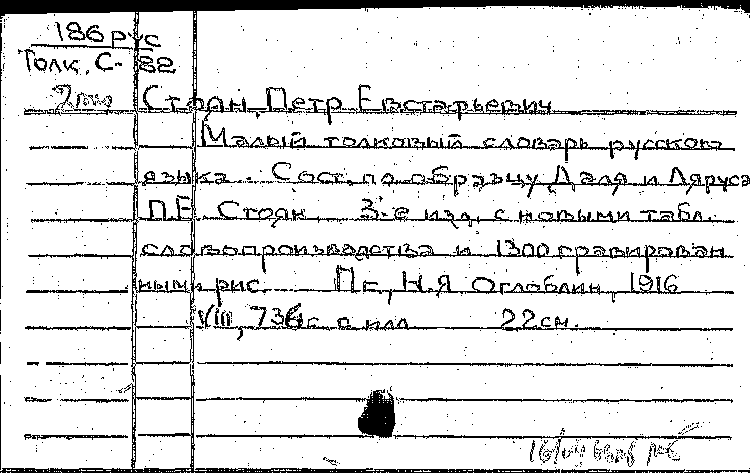 186 рус
Толк. С-82
Стоян, Петр Евстафьевич
Малый толковый словарь русского
языка. Сост. по образцу Даля и Ляруса
П.Е. Стоян. 3'-е изд. с новыми табл.
словопроизводства и 1300 гравирован
ными рис. Пг., Н.Я Оглоблин, 1916
VIII, 736 с. с илл 22 см.